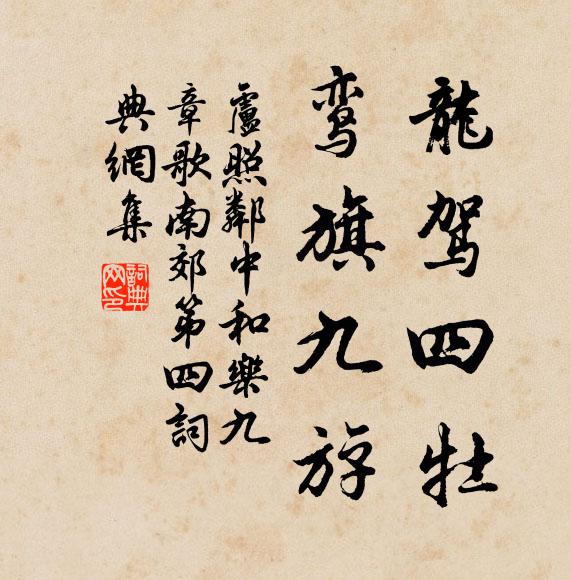 龍驾四牡
鸾旗九斿
盧照鄰中和樂九
章歌南郊第四詞
典網集
詞典网印